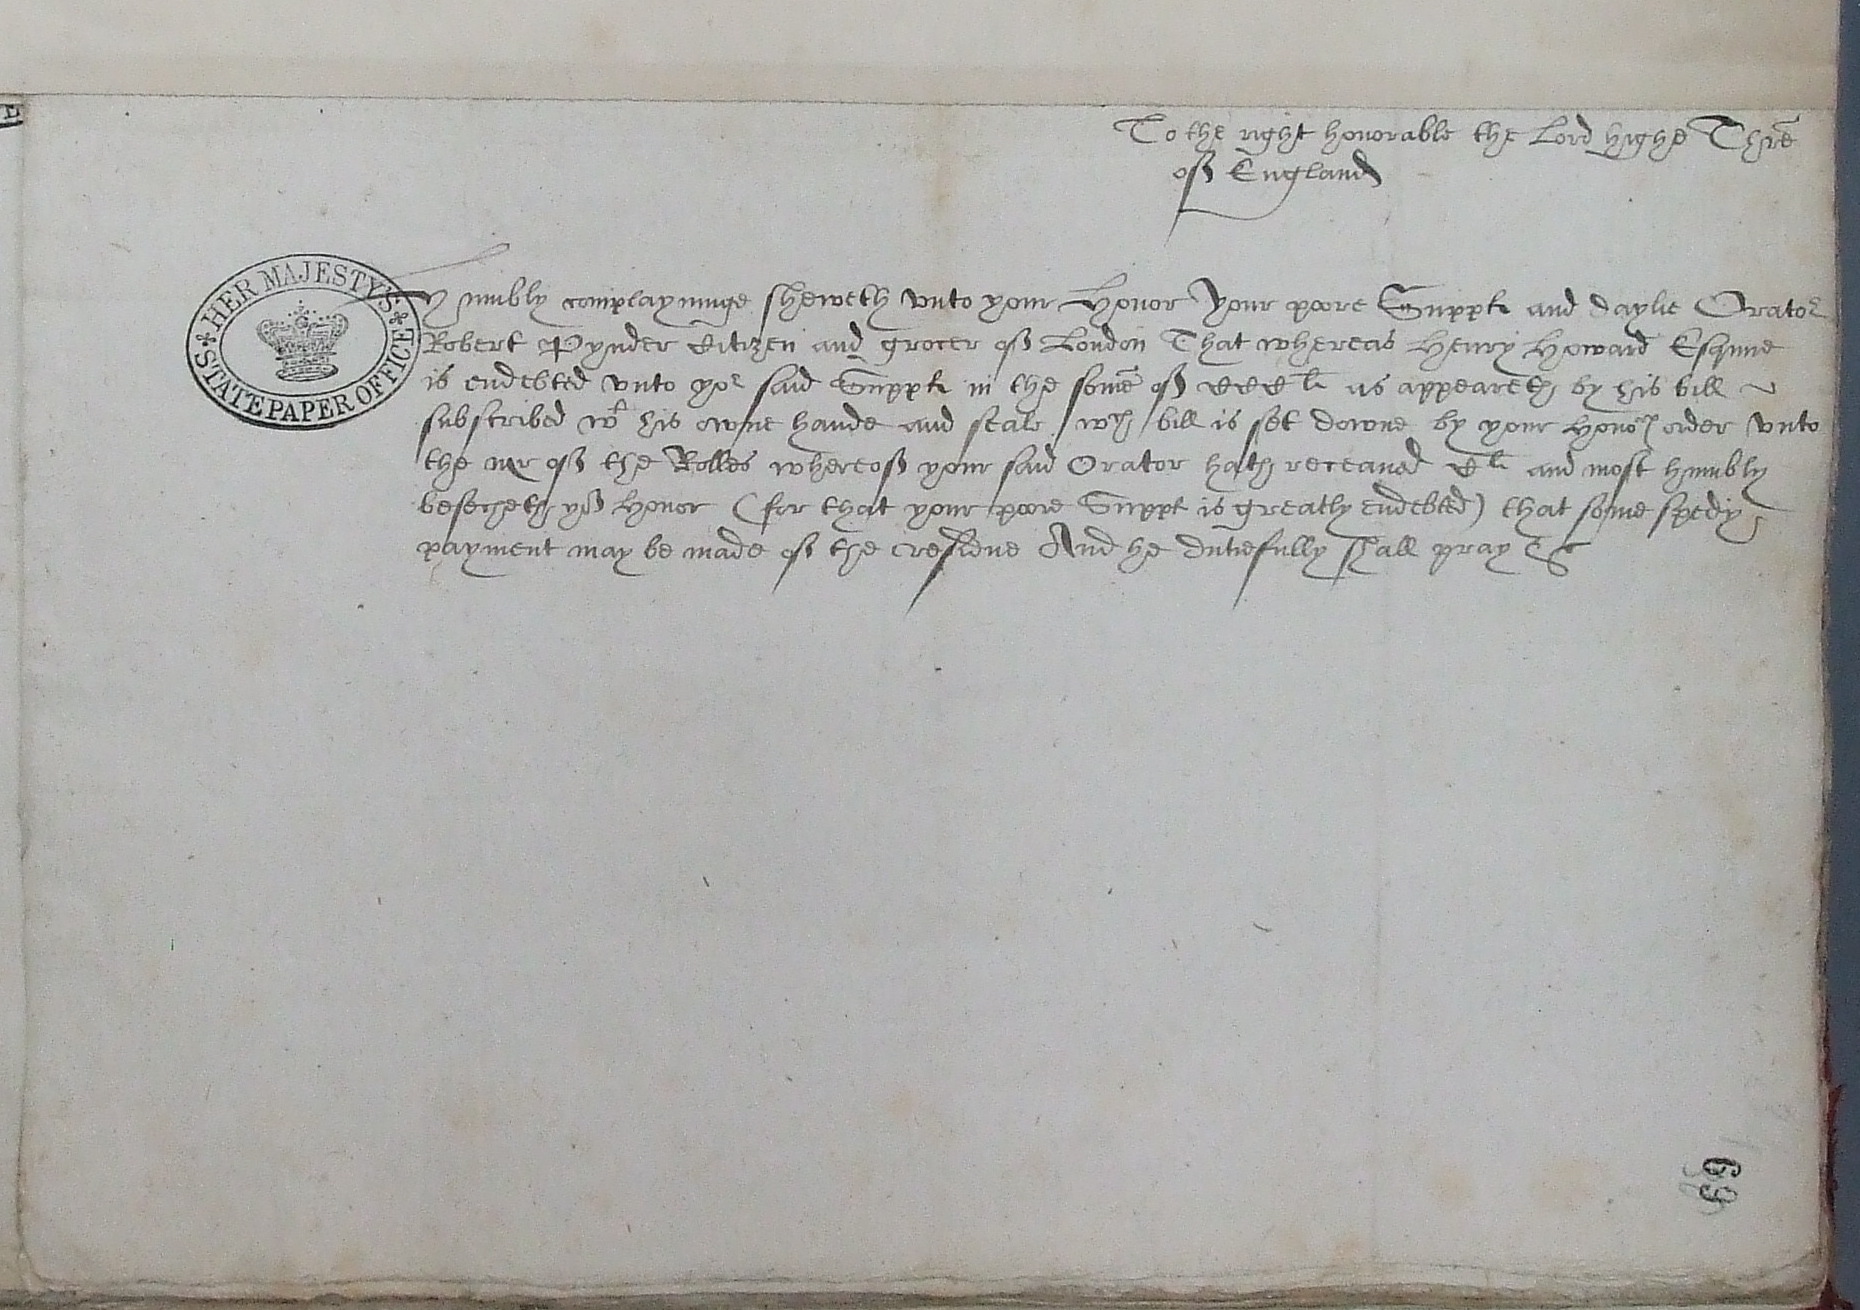 To the right honorable the Lord highe Thrẽ
of England
HER MAJESTY'S
STATE PAPER OFFICE
Humbly complayninge sheweth vnto your Honor Your poore Suppt and daylie Orator
Robert Pynder Citizen and grocer of London That whereas Henry Howard Esquire
is endebted vnto yor said Suppt in the some of CCCli as appeareth by his bill
subscribed wt his owne hande and seale / wch bill is set downe by your Honors order vnto
the mr of the Rolles whereof your said Orator hath receaued Cli and most humbly
besecheth yor Honor (for that your poore Suppt is greatly endebted) that some spedy
payment may be made of the residue And he dutiefully shall pray &c
69